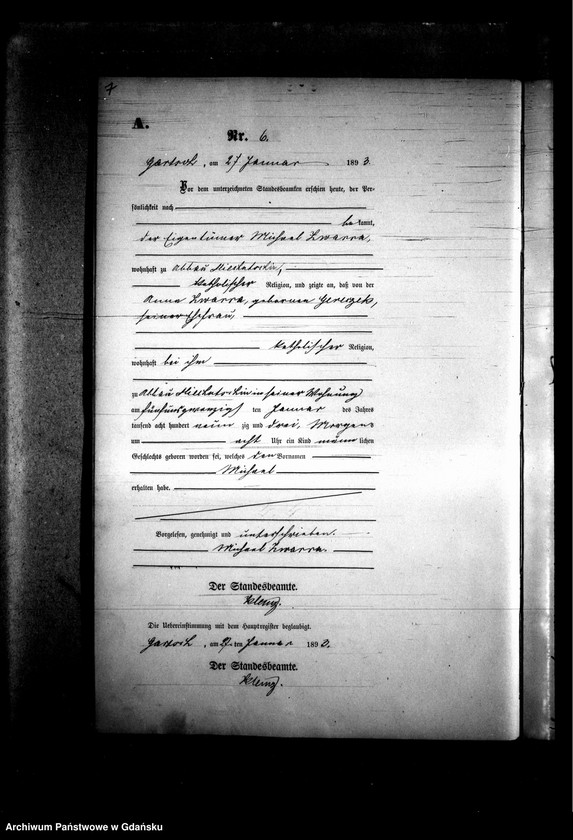 A.
Nr. 6.
Gartsch, am 27 Januar 1893.
Vor dem unterzeichneten Standesbeamten erschien heute, der Per-
sönlichkeit nach
bekannt,
der Eigentümer Michael Zwarra,
wohnhaft zu Abbau
katholischer Religion, und zeigte an, daß von der
Anna Zwarra, geborenen
seiner Ehefrau,
katholischer Religion,
wohnhaft bei ihm
zu Abbau in seiner Wohnung
am fünfundzwanzigsten Januar des Jahres
tausend acht hundert neunzig und drei, Morgens
um acht Uhr ein Kind männlichen
Geschlechts geboren worden sei, welches den Vornamen
Michael
erhalten habe.
Vorgelesen, genehmigt und unterschrieben.
Michael Zwarra.
Der Standesbeamte.
Die Uebereinstimmung mit dem Hauptregister beglaubigt.
Gartsch, am 27ten Januar 1893.
Der Standesbeamte.
Archiwum Państwowe w Gdańsku